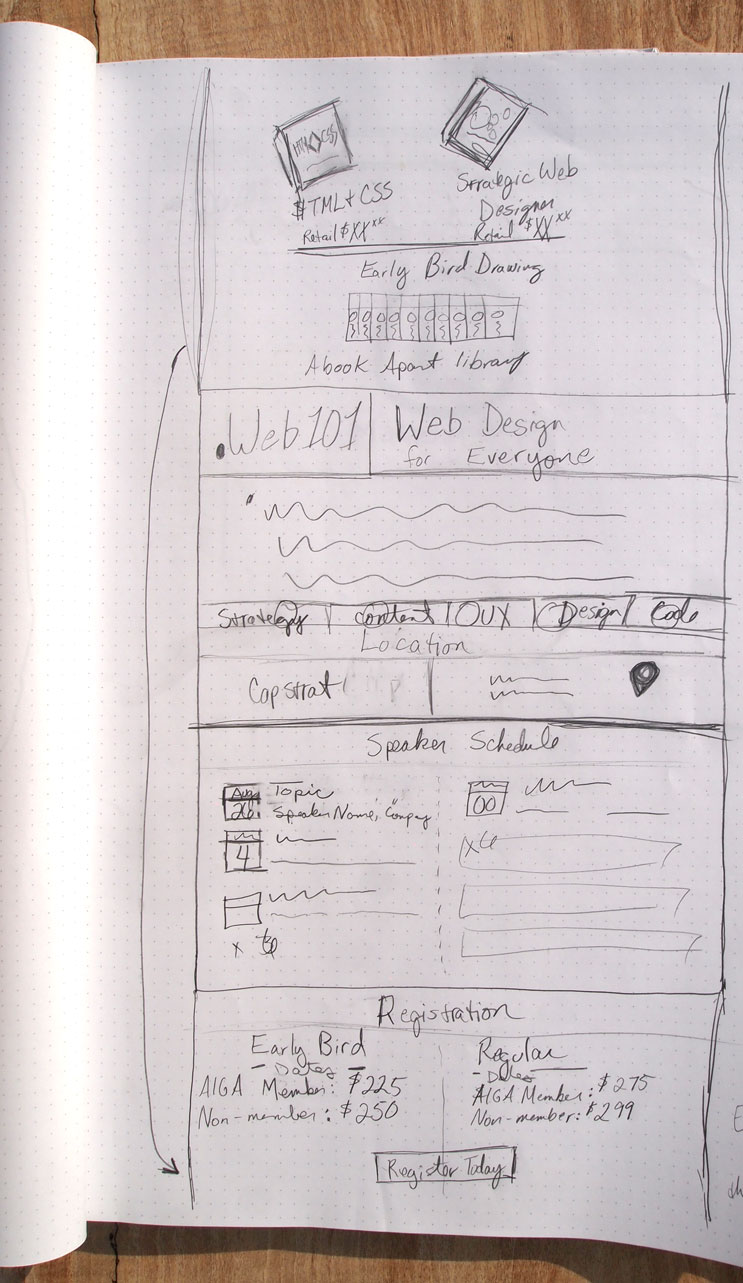 HTML CSS
HTML+CSS
Retail $XX xx
Strategic Web
Designer
Retail $XX xx
Early Bird Drawing
A book Apart library
.Web101
Web Design
for Everyone
Strategy | content | UX | Design | Code
Location
Capstrat
Speaker Schedule
Aug
26
Topic
Speaker Name, Company
4
00
x6
x 6
Registration
Early Bird
- Dates -
AIGA Member: $225
Non-member: $250
Regular
- Dates
AIGA Member: $275
Non-member: $299
Register Today